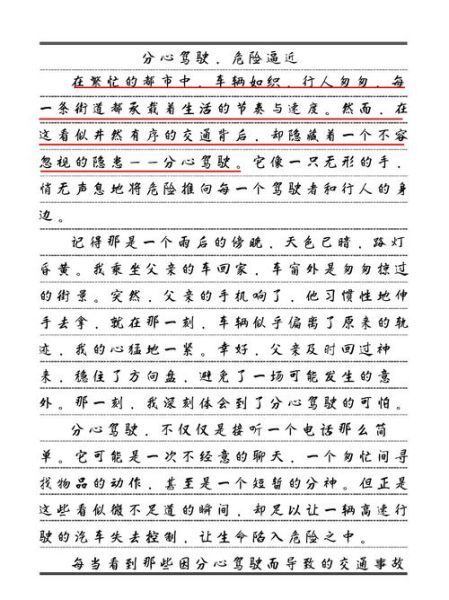 分心驾驶，危险逼近
在繁忙的都市中，车辆如织，行人匆匆，每
一条街道都承载着生活的节奏与速度。然而，在
这看似井然有序的交通背后，却隐藏着一个不容
忽视的隐患——分心驾驶。它像一只无形的手，
悄无声息地将危险推向每一个驾驶者和行人的身
边。
记得那是一个雨后的傍晚，天色已暗，路灯
昏黄。我乘坐父亲的车回家，车窗外是匆匆掠过
的街景。突然，父亲的手机响了，他习惯性地伸
手去拿，就在那一刻，车辆似乎偏离了原来的轨
迹，我的心猛地一紧。幸好，父亲及时回过神
来，稳住了方向盘，避免了一场可能发生的意
外。那一刻，我深刻体会到了分心驾驶的可怕。
分心驾驶，不仅仅是接听一个电话那么简
单。它可能是一次不经意的聊天，一个匆忙间寻
找物品的动作，甚至是一个短暂的分神。但正是
这些看似微不足道的瞬间，却足以让一辆高速行
驶的汽车失去控制，让生命陷入危险之中。
每当看到那些因分心驾驶而导致的交通事故